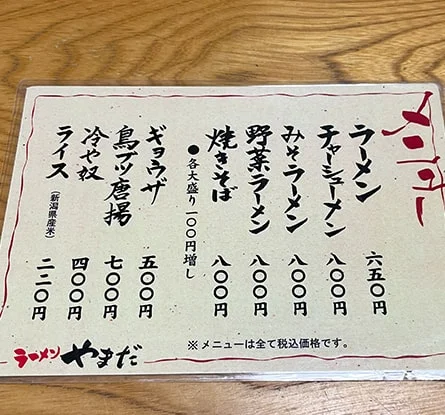 メニュー
ラーメン 六五〇円
チャーシューメン 八〇〇円
みそラーメン 八〇〇円
野菜ラーメン 八〇〇円
焼きそば 八〇〇円
●各大盛り一〇〇円増し
ギョウザ 五〇〇円
鳥ブツ唐揚 七〇〇円
冷や奴 四〇〇円
ライス(新潟県産米) 二二〇円
※メニューは全て税込価格です。
ラーメン やまだ